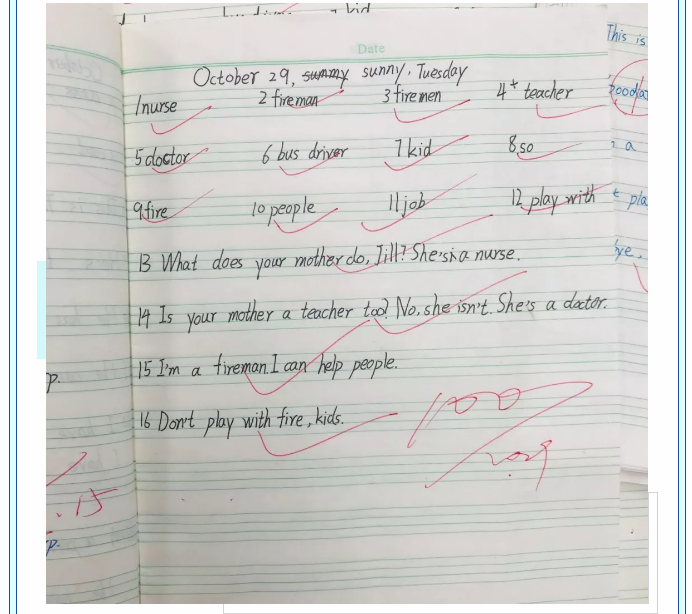 kid
Date
This is
October 29, sunny sunny, Tuesday
1 nurse 2 fireman 3 firemen 4* teacher
5 doctor 6 bus driver 7 kid 8 so
a
9 fire 10 people 11 job 12 play with
pla
13 What does your mother do, Jill? She's a nurse.
14 Is your mother a teacher too? No, she isn't. She's a doctor.
15 I'm a fireman. I can help people.
p.
16 Don't play with fire, kids.
100
15
p.